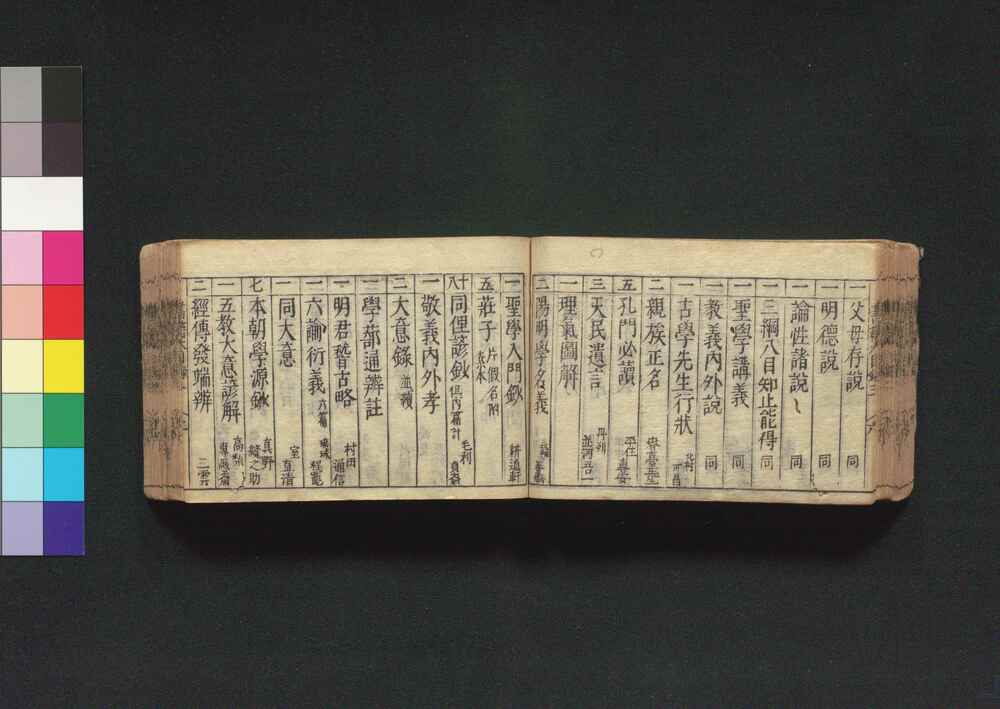 一 父母存説 同
一 明德説 同
一 論性諸説 同
一 三綱八目知止能得 同
一 聖學講義 同
一 教義內外説 同
一 古學先生行狀 北村
二 親族正名
五 孔門必讀
三 天民遺言 並河
一 理氣圖解
二 陽明學名義
一 聖學入門鈔 耕道軒
五 莊子 片假名附
十八 同俚諺鈔 毛利貞齋
一 敬義內外考
二 大意錄
一 學蔀通辨註
一 明君嘗古略 村田通信
一 六諭衍義
一 同大意 室直清
七 本朝學源鈔 真野
一 五教大意諺解
二 經傳發端辨 二雲